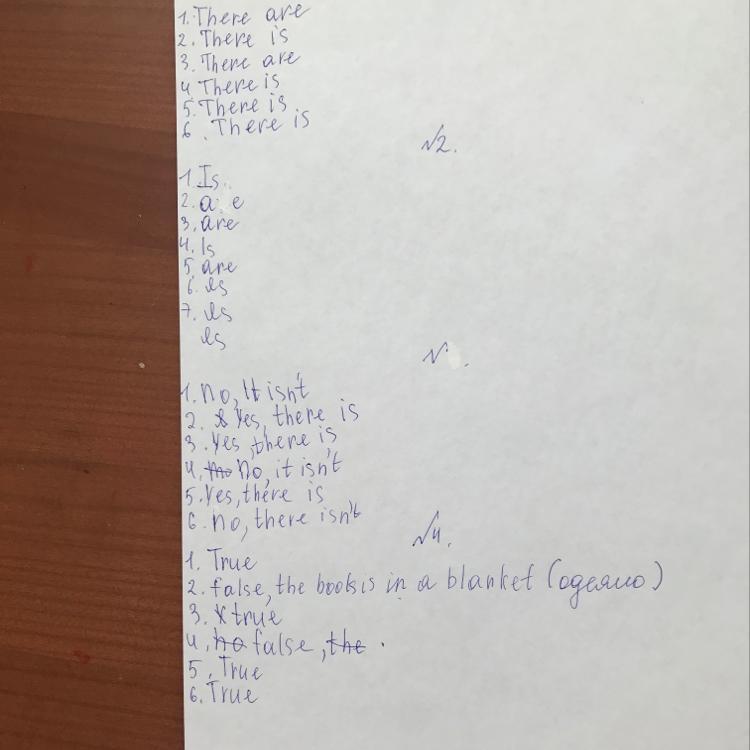 1. There are
2. There is
3. There are
4 There is
5. There is
6. There is
№2.
1. Is.
2. a e
3. are
4. Is
5. are
6. Is
7. Is
Is
№ .
1. No, It isn't
2. Yes, there is
3. Yes, there is
4. no No, it isn't
5. Yes, there is
6. no, there isn't
№4.
1. True
2. false, the book is in a blanket (одеяло)
3. true
4. no false, the .
5. True
6. True